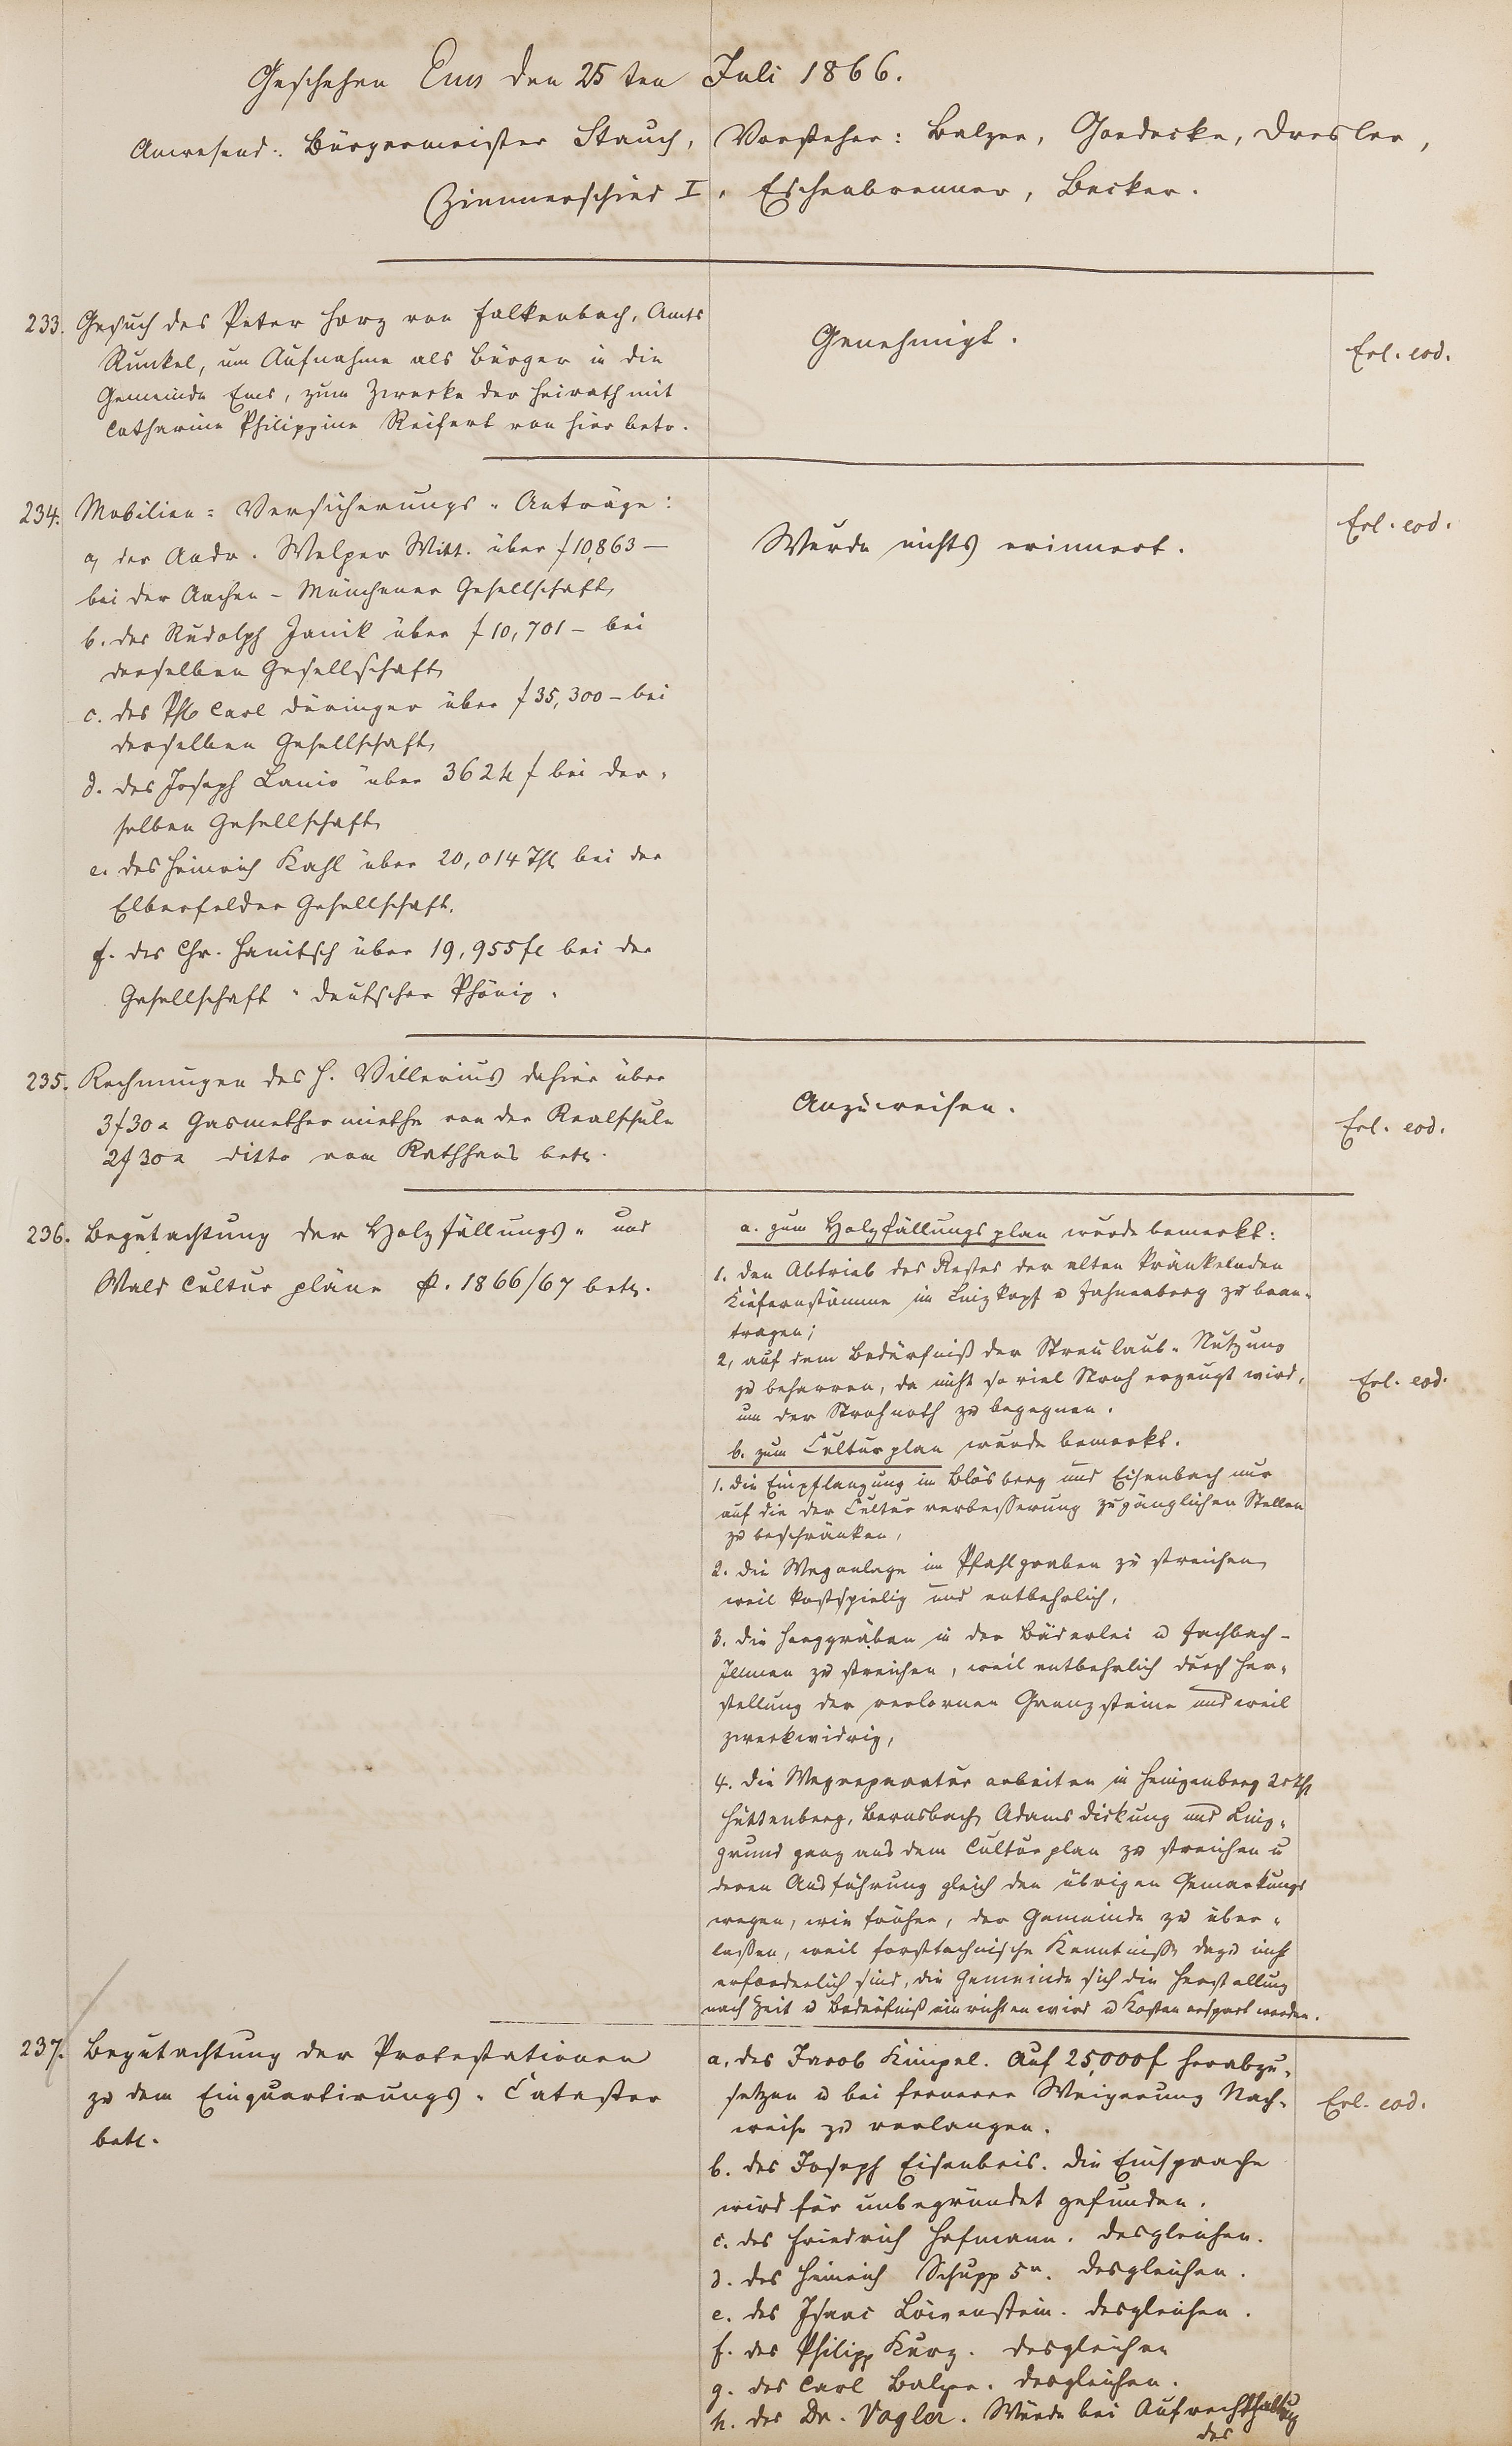 Geschehen Ems den 25ten Juli 1866.
Anwesend: Bürgermeister Stauch, Vorsteher: Balzer, Goedecke, Dresler,
Zimmerschied I, Eschenbrenner, Becker.
233. Gesuch des Peter Harz von Falkenbach, Amts
Runkel, um Aufnahme als Bürger in die
Gemeinde Ems, zum Zwecke der Heirath mit
Catharine Philippine Reifert von hier betr.
Genehmigt.
Erl. eod.
234. Mobilien-Versicherungs-Anträge:
a, der Andr. Welper Witt. über f 10,863 —
bei der Aachen-Münchener Gesellschaft,
b. des Rudolph Janik über f 10,701 — bei
derselben Gesellschaft,
c. des Carl Düringer über f 35,300 — bei
derselben Gesellschaft,
d. des Joseph Lanio über 3624 f bei der-
selben Gesellschaft,
e. des Heinrich Kahl über 20,014 Thl bei der
Elberfelder Gesellschaft.
f. des Chr. Hanitsch über 19,955 fl bei der
Gesellschaft "deutscher Phönix.
Wurde nichts erinnert.
Erl. eod.
235. Rechnungen des H. Villerius dahier über
3 f 30 x Gasmethermiethe von der Realschule
2 f 30 x ditto vom Rathhaus betr.
Anzuweisen.
Erl. eod.
236. Begutachtung der Holzfällungs- und
Wald Cultur pläne p. 1866/67 betr.
a. zum Holzfällungsplan wurde bemerkt:
1. den Abtrieb des Restes der alten kränkelnden
Kiefernstämme im Linzkopf u Fahnenberg zu bean-
tragen;
2, auf dem Bedürfniß der Streulaub-Nutzung
zu beharren, da nicht so viel Stroh erzeugt wird,
um der Strohnoth zu begegnen.
b. zum Culturplan wurde bemerkt.
1. die Einpflanzung im Blösberg und Eisenbach nur
auf die der Cultur verbesserung zugänglichen Stellen
zu beschränken,
2. die Weganlage im Pfahlgraben zu streichen,
weil kostspielig und entbehrlich,
3. die Heeggräben in der Bäderlei u Fachbach-
zu streichen, weil entbehrlich durch Her-
stellung der verlornen Grenzsteine und weil
zweckwidrig,
4. die Wegreparatur arbeiten in
Hüttenberg, Bernsbach, Adams dickung und Linz-
grund ganz aus dem Culturplan zu streichen u
deren Ausführung gleich den übrigen Gemarkungs
wegen, wie früher, der Gemeinde zu über-
laßen, weil forsttechnische Kenntniße dazu nicht
erforderlich sind, die Gemeinde sich die Herstellung
nach Zeit u Bedürfniß einrichten wird u Kosten erspart werden.
Erl. eod.
237. Begutachtung der Protestationen
zu dem Einquartirungs-Cataster
betr.
a, des Jacob Kimpel. Auf 25,000 f herabzu-
setzen u bei fernerer Weigerung Nach-
weise zu verlangen.
b. des Joseph Eisenbeis. die Einsprache
wird für unbegründet gefunden.
c. des Friedrich Hofmann. desgleichen.
d. des Heinrich Schupp 5r. desgleichen.
e. des Isaac Löwenstein. desgleichen.
f. des Philipp Kurz. desgleichen
g. des Carl Balzer. desgleichen.
h. des Dr. Vogler. Würde bei Aufrechthaltung
des
Erl. eod.